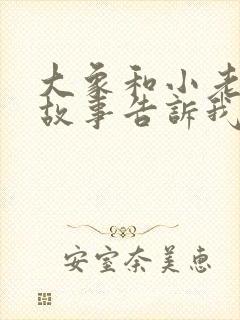 大象和小老
故事告訴我
安室奈美惠